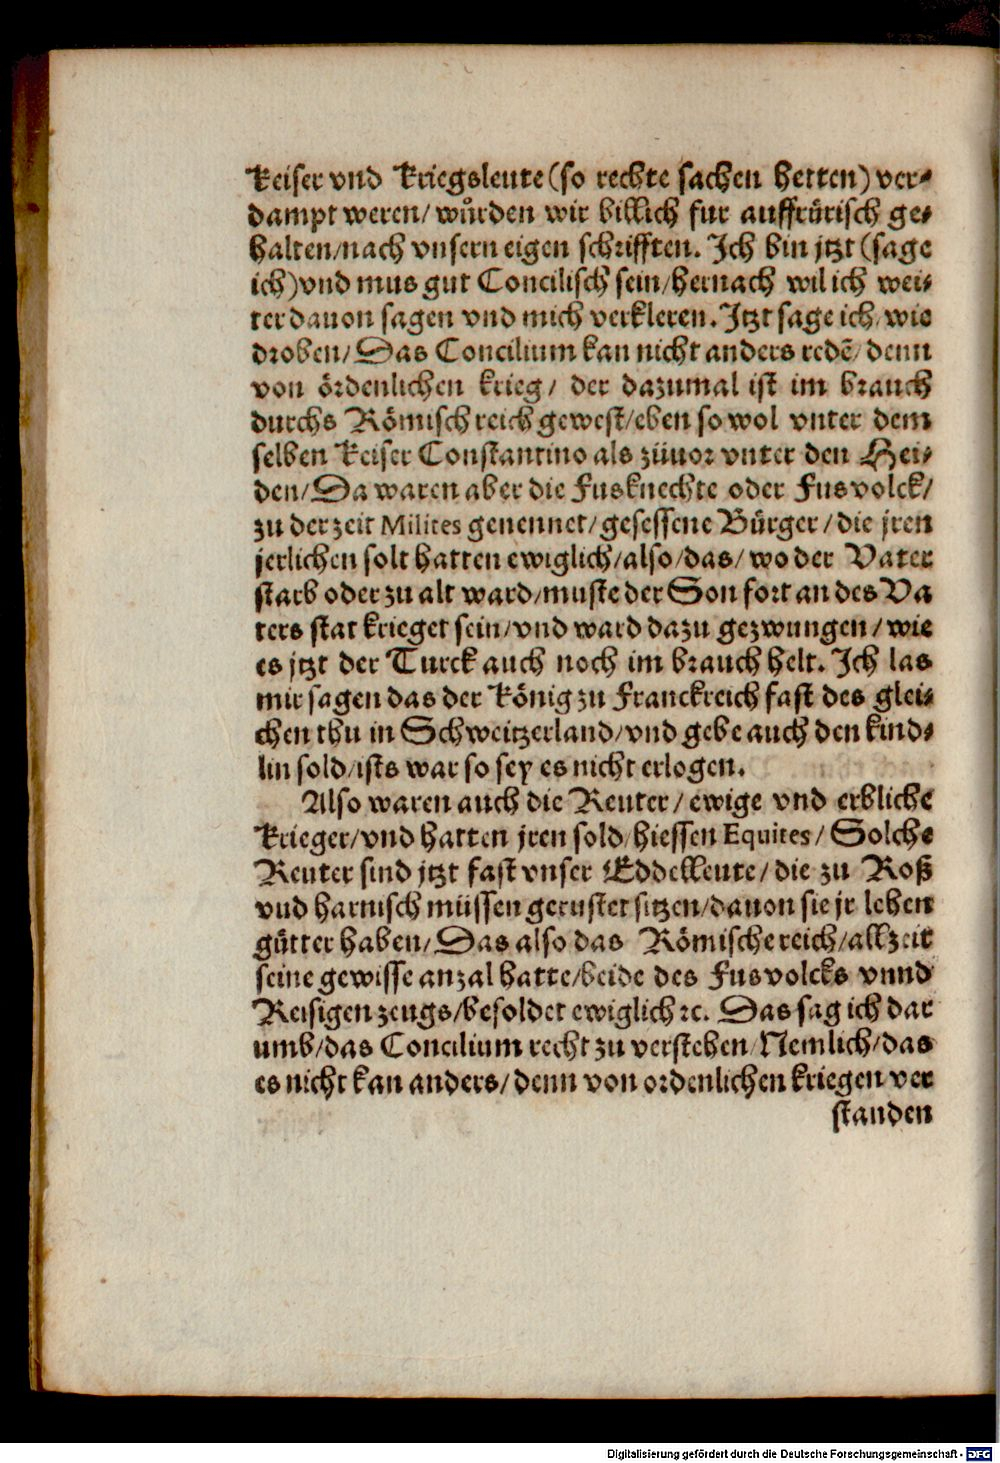 Keiser vnd Kriegsleute (so rechte sachen hetten) ver⸗
dampt weren/ wuͤrden wir billich fur auffrürisch ge⸗
halten/nach vnsern eigen schrifften. Ich bin jtzt (sage
ich) vnd mus gut Concilisch sein/hernach wil ich wei⸗
ter dauon sagen vnd mich verkleren. Itzt sage ich/wie
droben/ Das Concilium kan nicht anders redē/ denn
von ördenlichen krieg/ der dazumal ist im brauch
durchs Römisch reich gewest/eben so wol vnter dem
selben Keiser Constantino als züuor vnter den Hei⸗
den/ Da waren aber die Fusknechte oder Fusvolck/
zu der zeit Milites genennet/ gesessene Bürger/ die jren
jerlichen solt hatten ewiglich/also/das/ wo der Vater
starb oder zu alt ward/muste der Son fort an des Va
ters stat krieget sein/vnd ward dazu gezwungen/ wie
es jtzt der Turck auch noch im brauch helt. Ich las
mir sagen das der König zu Franckreich fast des glei⸗
chen thu in Schweitzerland/vnd gebe auch den kind⸗
lin sold/ists war so sey es nicht erlogen.
Also waren auch die Reuter/ ewige vnd erbliche
Krieger/vnd hatten jren sold/hiessen Equites/ Solche
Reuter sind jtzt fast vnser Eddelleute/ die zu Roß
vnd harnisch müssen gerustet sitzen/dauon sie jr lehen
gütter haben/ Das also das Römische reich/allzeit
seine gewisse anzal hatte/beide des Fusvolcks vnnd
Reisigen zeugs/besoldet ewiglich ꝛc. Das sag ich dar
umb/das Concilium recht zu verstehen/Nemlich/das
es nicht kan anders/ denn von ordenlichen kriegen ver
standen
Digitalisierung gefördert durch die Deutsche Forschungsgemeinschaft - DFG